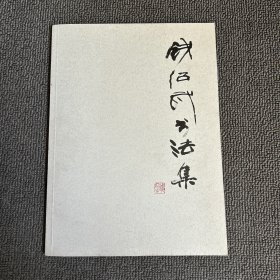 钱绍武书法集